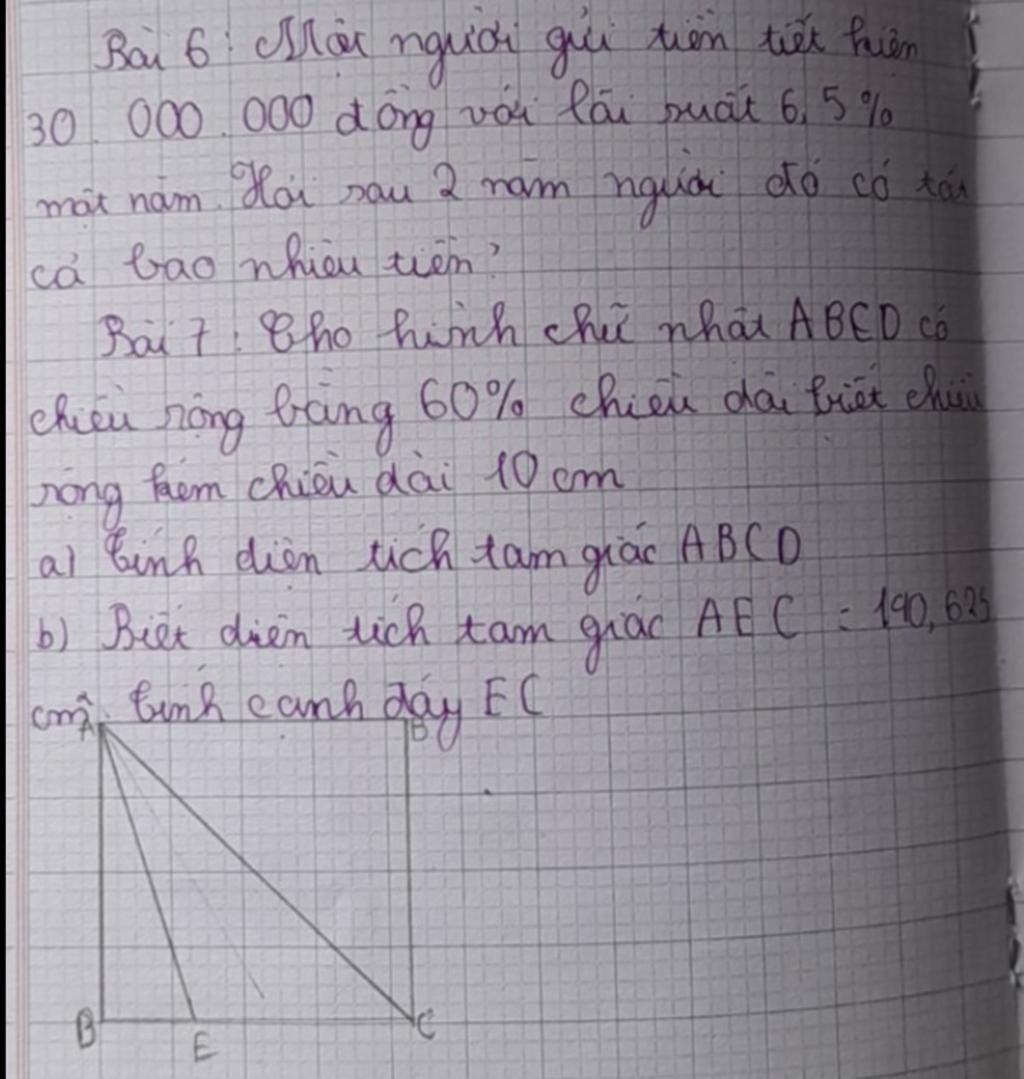 Bài 6: Một người gửi tiền tiết kiệm
30.000.000 đồng với lãi suất 6,5%
một năm. Hỏi sau 2 năm người đó có tất
cả bao nhiêu tiền?
Bài 7: Cho hình chữ nhật ABCD có
chiều rộng bằng 60% chiều dài biết chiều
rộng kém chiều dài 10 cm
a) Tính diện tích tam giác ABCD
b) Biết diện tích tam giác AEC = 190,625
cm². Tính cạnh đáy EC
A B
B E C